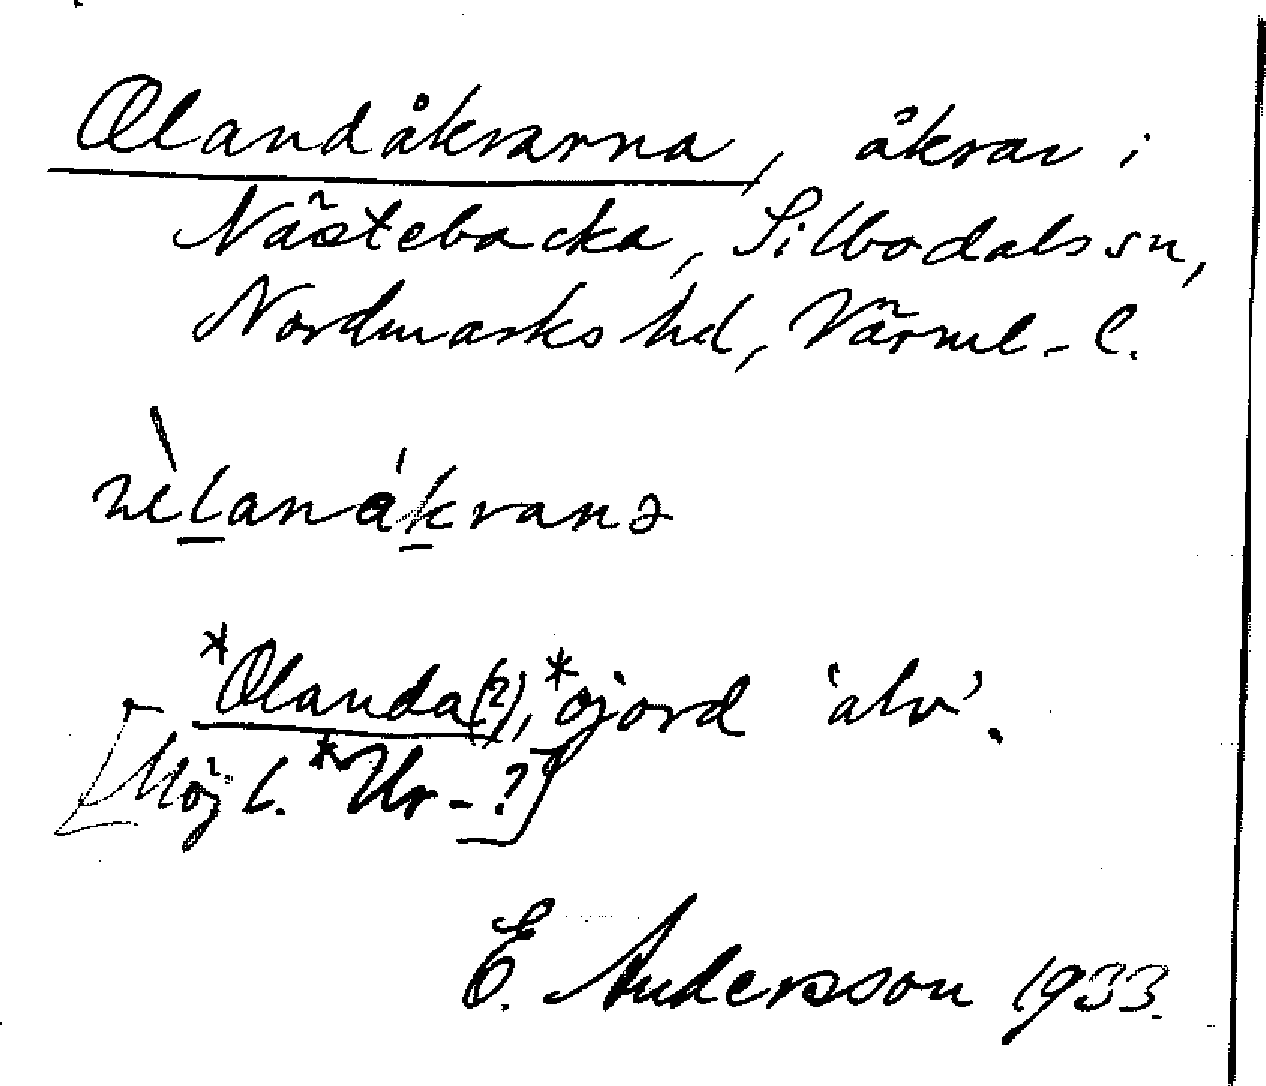 Ølandåkrarna, åkrar i
Nästebacka, Silbodals sn,
Nordmarks hd, Värml. l.
*Ølanda(?), *ojord 'alv'.
[Möjl. *Ur-?]
E. Andersson 1933.